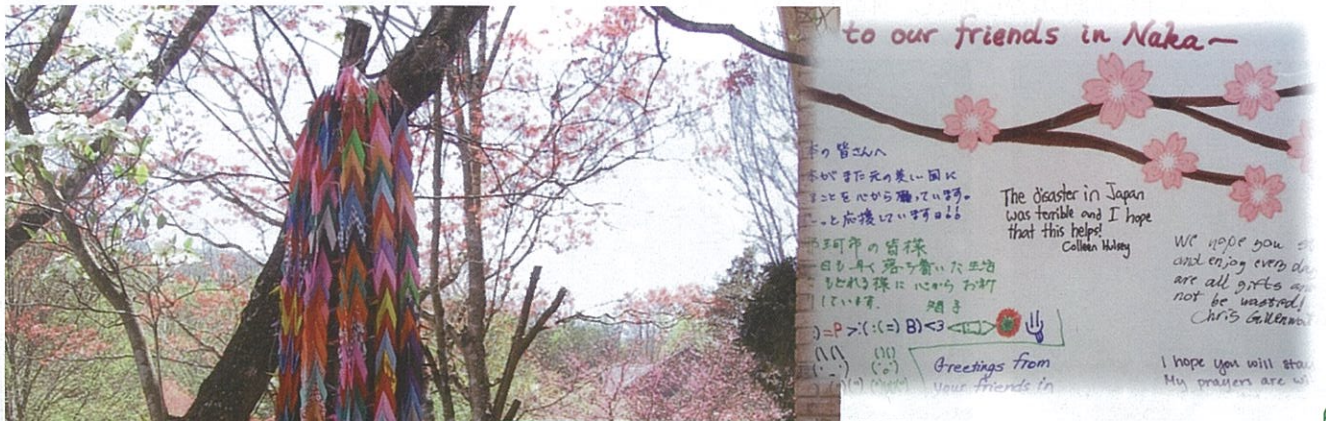 to our friends in Naka~
の皆さんへ
がまた元の美しい国に
ことを心から願っています。
っと応援しています!!
The disaster in Japan
was terrible and I hope
that this helps!
Colleen Hulsey
市の皆様
日も早く落ち着いた生活
もどれる様に心からお祈
しています。
We hope you
and enjoy every da
are all gifts
not be wasted!
Chris
=P >:( :(=) B) <3
Greetings from
your friends in
I hope you will sta
My prayers are wi